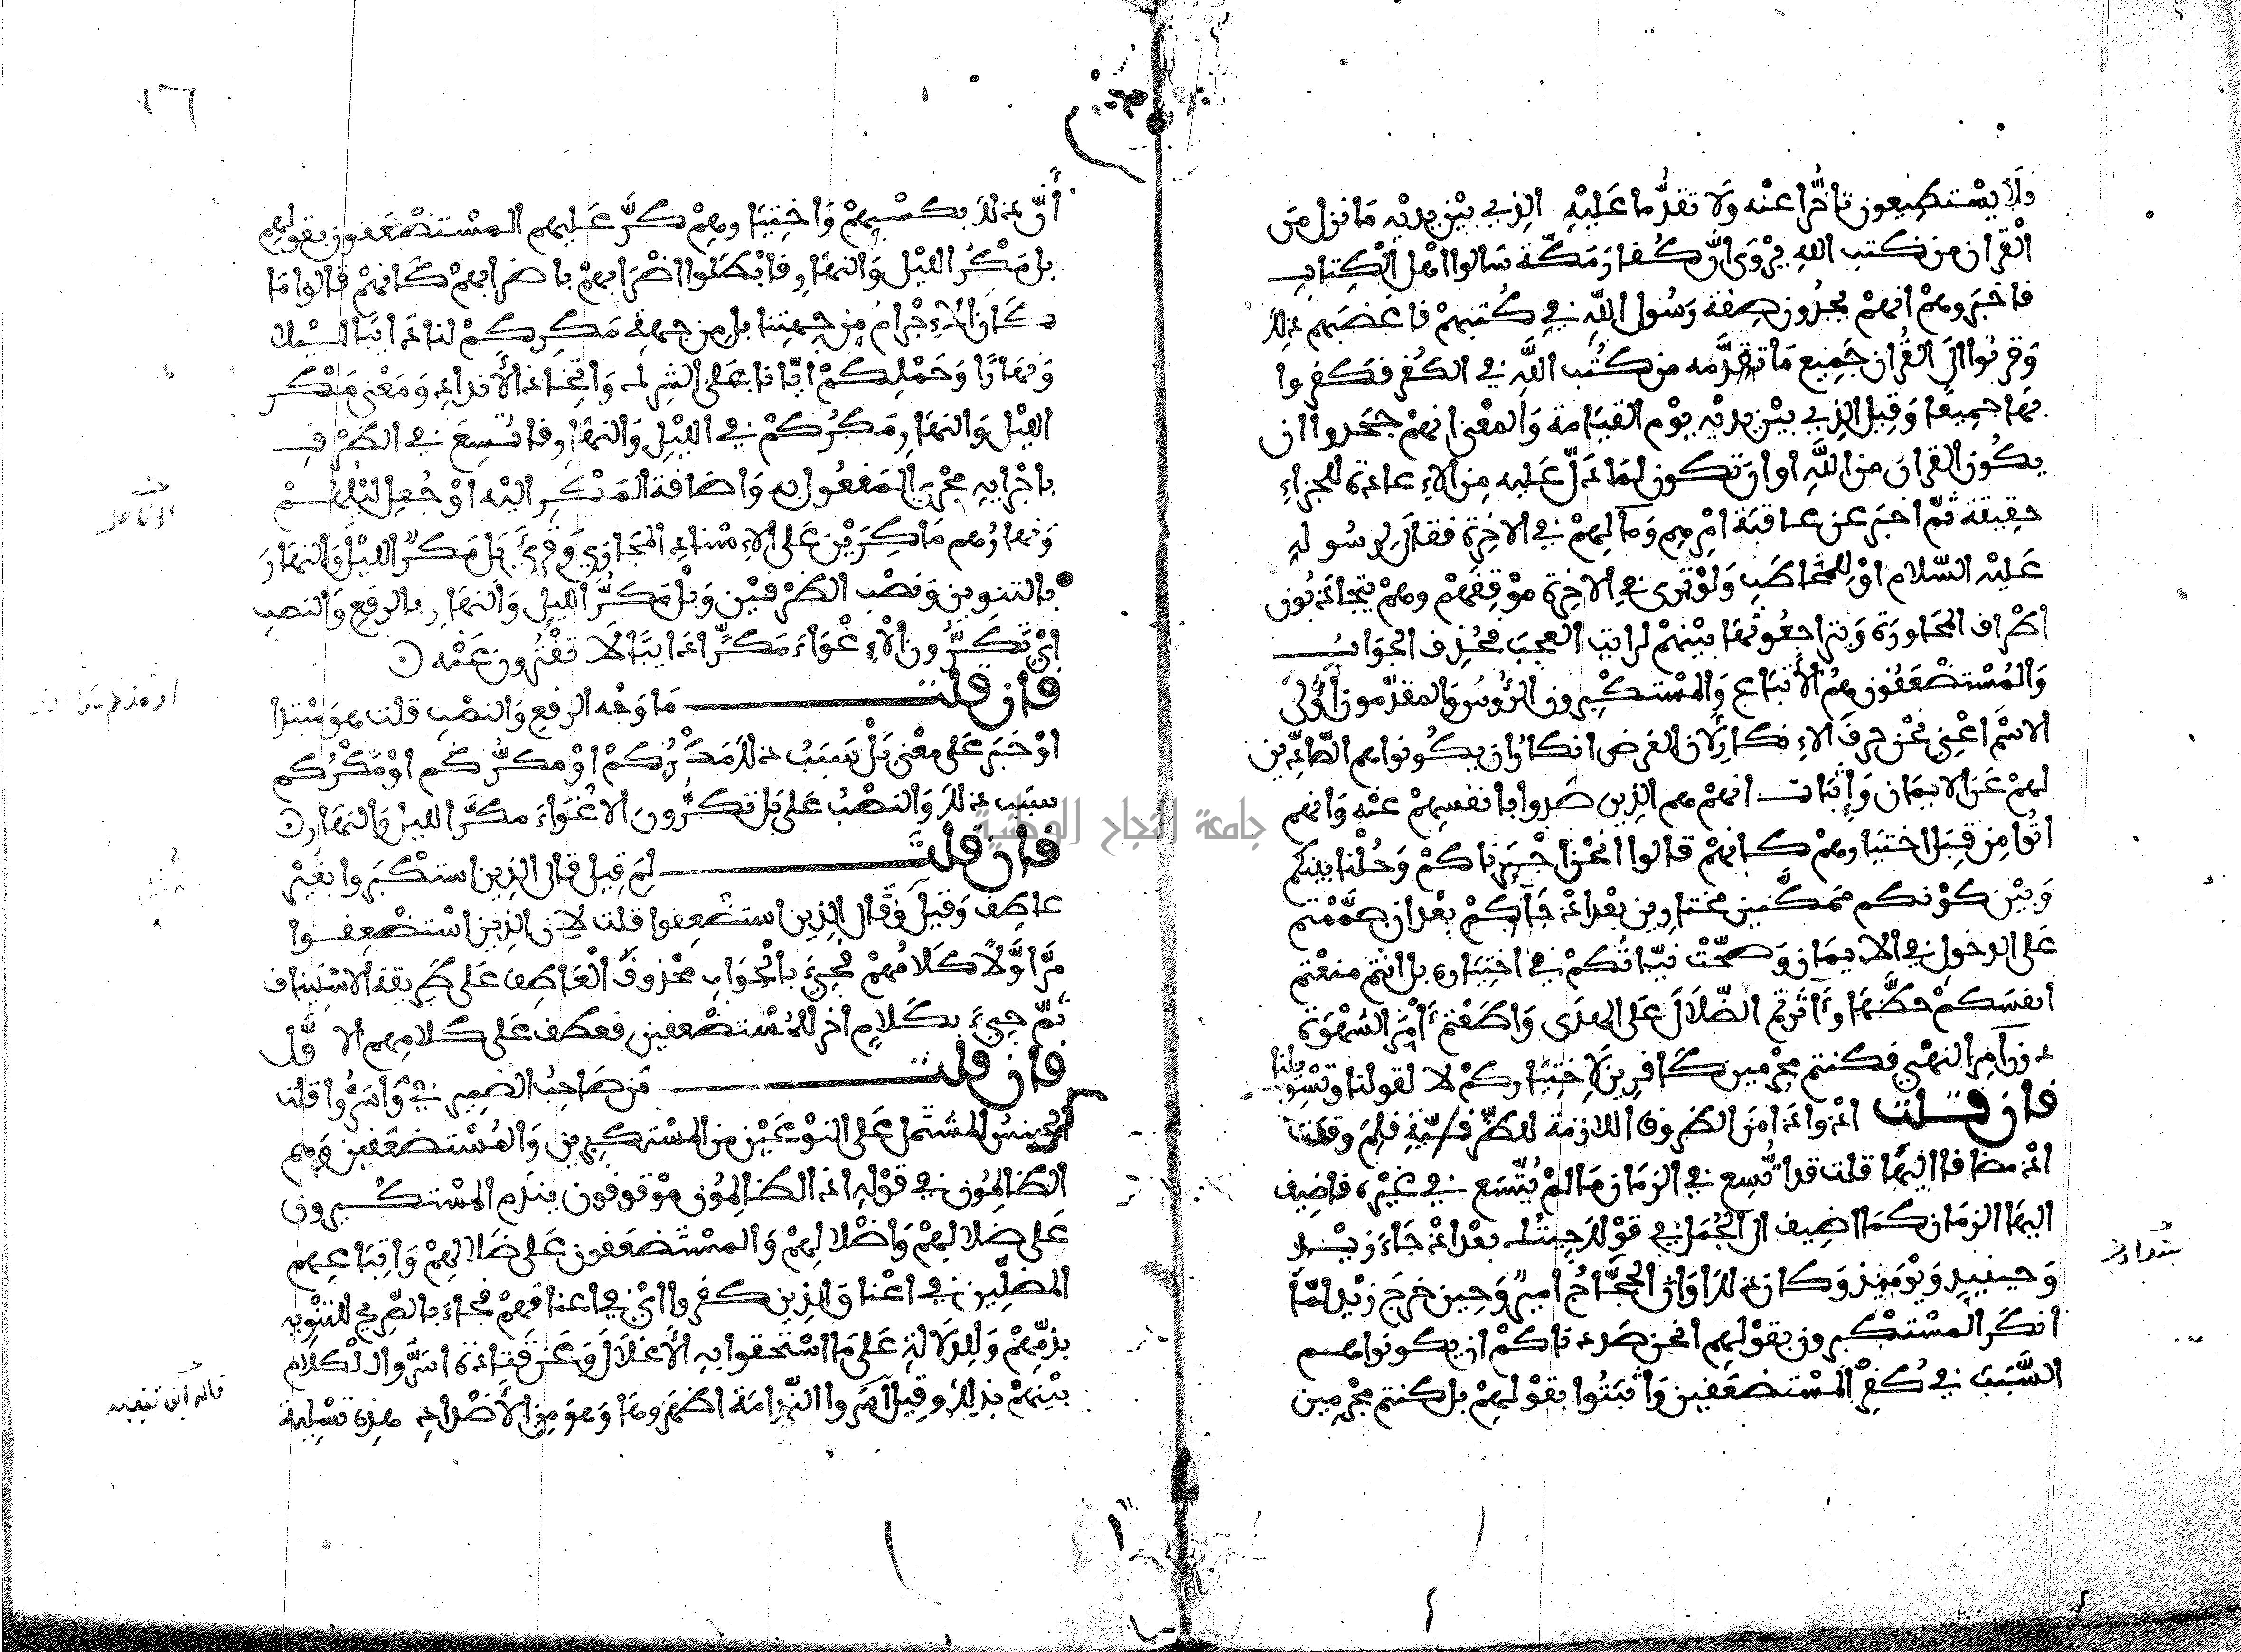 وَلَا يسْتطِيعون تاخُّرًا عنْه وَلَا تقدُّما عَليْهِ الذِي بيْن يديْه مَا نزل مِن
الْقرْان من كتب اللهِ يرْوى ان كُفار مَكّة سَالوا اهل الْكِتاب
فاخبَروهمْ انهمْ يجدُون صِفة رَسُول اللَّهِ في كُتبهمْ فاغضبَهم ذلك
وَقرنوا الى القُران جَمِيع مَا تقدَّمه من كتُب اللَّهِ في الكُفر فكفروا
بهَا جمِيعًا وَقِيل الذِي بيْن يديْه يوْم القيَامة وَالمعْنى انهمْ جحَدوا ان
يكُون القرانَ من اللَّهِ او ان تكون لمَا دَلّ عَليه مِن الاِعادة للجزاءِ
حقِيقة ثمّ اخبَر عن عاقبَة امْرهم وَمآلهمْ في الاخِرة فقال لرسُوله
عَليْه السّلام اوْ للمخاطَب وَلوْ ترى في الاخِرة موْقِفهمْ وهمْ يتجاذبُون
اطْراف المحَاورة وَيتراجعُونهَا بيْنهمْ لرايت العجَب فحُذِف الجوَاب
وَالمُسْتضْعَفُون همُ الاَتبَاع وَالمسْتكْبِرون الرُّءوسُ وَالمقدَّمون اَوْلى
الاسْم اعْنِي نحْن حرفَ الاِنكار لاَن الغرَض انكارُ ان يكُونوا هم الصَّادِّين
لهمْ عَن الايمَان وَاثبَات انهمْ هم الذِين صَدوا بانفسِهمْ عنْه وَانهم
اتُوا مِن قِبَل اختيَارهمْ كانهمْ قالوا انحْن اجْبَرْناكمْ وَحُلْنا بينكم
وَبيْن كوْنكم ممَكَّنين مختارين بعْد اذ جَاَكُمْ بعْد ان صَمَّمْتم
عَلى الدخول في الايمَان وَصحّتْ نيّاتُكمْ في اختِيَاره بل انتم منعْتم
انفسَكمْ حظَّهَا وَآثرتم الضّلالَ عَلى الهدَى وَاطَعْتم آمِرَ الشهْوَة
دون آمِر النهْي فكنتم مجْرمين كافِرين لاَخِتيَاركمْ لا لقولنا وتسْوِيلنا
فان قلت اذْ وَاذَا منَ الظرُوف اللازمة للظّرْفيّةِ فلِمَ وقعَت
اذْ مضافا اليْهَا قلت قد اتُّسِع في الزمَان مَا لمْ يُتّسَع في غيْره فاضِيف
اليهَا الزمَان كمَا اضِيف الى الجُمَل في قوْلك جِئتُك بعْد اذْ جَاءَ زيْد
وَحينئِذٍ وَيوْمَئِذ وَكان ذلك اوَان الحَجَّاجُ امِيرٌ وَحِين خرَج زيْد لمّا
انكَر المسْتكْبرون بقوْلهم انحن صَددناكمْ ان يكونوا هم
السَّبَبَ في كُفْرِ المسْتضعَفِين وَاثبَتُوا بقوْلهمْ بل كنتم مجْرمِين
١٦
أنّ ذلك بكسْبهمْ وَاختِيَارهمْ كرَّ عَليهم المسْتضْعَفون بقوْلهم
بل مَكْرُ الليْل وَالنهَارِ فابْطَلوا اضْرَابهمْ باضرابهمْ كَانهمْ قالوا مَا
كانَ الاِجْرامُ مِن جِهتِنا بل مِن جهةِ مَكرِكمْ لنا دائبًا ليْلا
وَنهارًا وَحَمْلِكمْ ايّانا عَلى الشِرك وَاتخاذ الاَنداد وَمَعْنى مَكْر
الليْل وَالنهَار مَكرُكمْ في الليْل وَالنهَار فاتُّسِعَ في الظَرْف
باجْرايه مجْرى المفعُول به وَاضافة المَكْر اليْه اوْ جُعِل ليْلُهُمْ
وَنهارُهم مَاكِرَيْن عَلى الاِسْناد المجَازي وَقرئَ بَل مَكرٌ الليْلَ وَالنهَارَ
بالتنوين وَنصْب الظرْفيْن وَبلْ مَكَرُّ الليل وَالنهَار بالرفع وَالنصب
ايْ تَكرُّون الْاِغْوَاءَ مَكرًّا دايبًا لَا تفْترُون عَنْه
فان قلت مَا وَجْه الرفع وَالنصْب قلت هوَ مبْتدا
اوْ خبَر عَلى معْنى بَلْ سَبَبُ ذلك مَكْرُكمْ اوْ مكَرُّكُم اوْ مَكْرُكُم
سبَب ذلك وَالنصْبُ عَلى بَل تكرُّونَ الاغْوَاءَ مكَرَّ الليل وَالنهَار
فان قلت لِمَ قِيل قال الذِين استكْبَروا بغَيْر
عاطِف وَقيل وَقال الذِين استضعِفوا قلت لاَن الذِين اسْتضْعِفوا
مرَّ اوَّلًا كلَامُهمْ فجِيءَ بالجوَابِ محْذوفَ الْعَاطِف عَلى طرِيقة الاسْتِيناف
ثمّ جِيءَ بكلامٍ اخر للمُسْتضْعفين فعطف عَلى كلامِهم الاوَّل
فان قلت مَن صَاحِبُ الضمِير في وَاسَرُّوا قلت
الجِنسُ المشتمِل عَلى النوْعَيْن من المسْتكبِرين وَالمُسْتضعَفِين وَهم
الظالِمُون في قوْلِه اذ الظالِمُون موْقوفون يندَم المسْتكْبرون
عَلى ضلالهِمْ وَاضْلالهِمْ وَالمسْتضعَفون عَلى ضَلالهِمْ وَاتبَاعِهم
المضلِّين في اعْناق الذِين كفروا ايْ في اعناقهمْ فجاءَ بالصَّريح للتنْوِيه
بذمِّهِمْ وَللدلالةِ عَلى مَا اسْتحَقوا بِه الاَغلالَ وَعَن قتادة اسَرُّوا الكلام
بيْنهمْ بذلك وَقِيل اسَروا النّدامَة اظهَروهَا وَهوَ مِن الاَضْداد هذِه تسْلِية
جامعة النجاح الوطنية